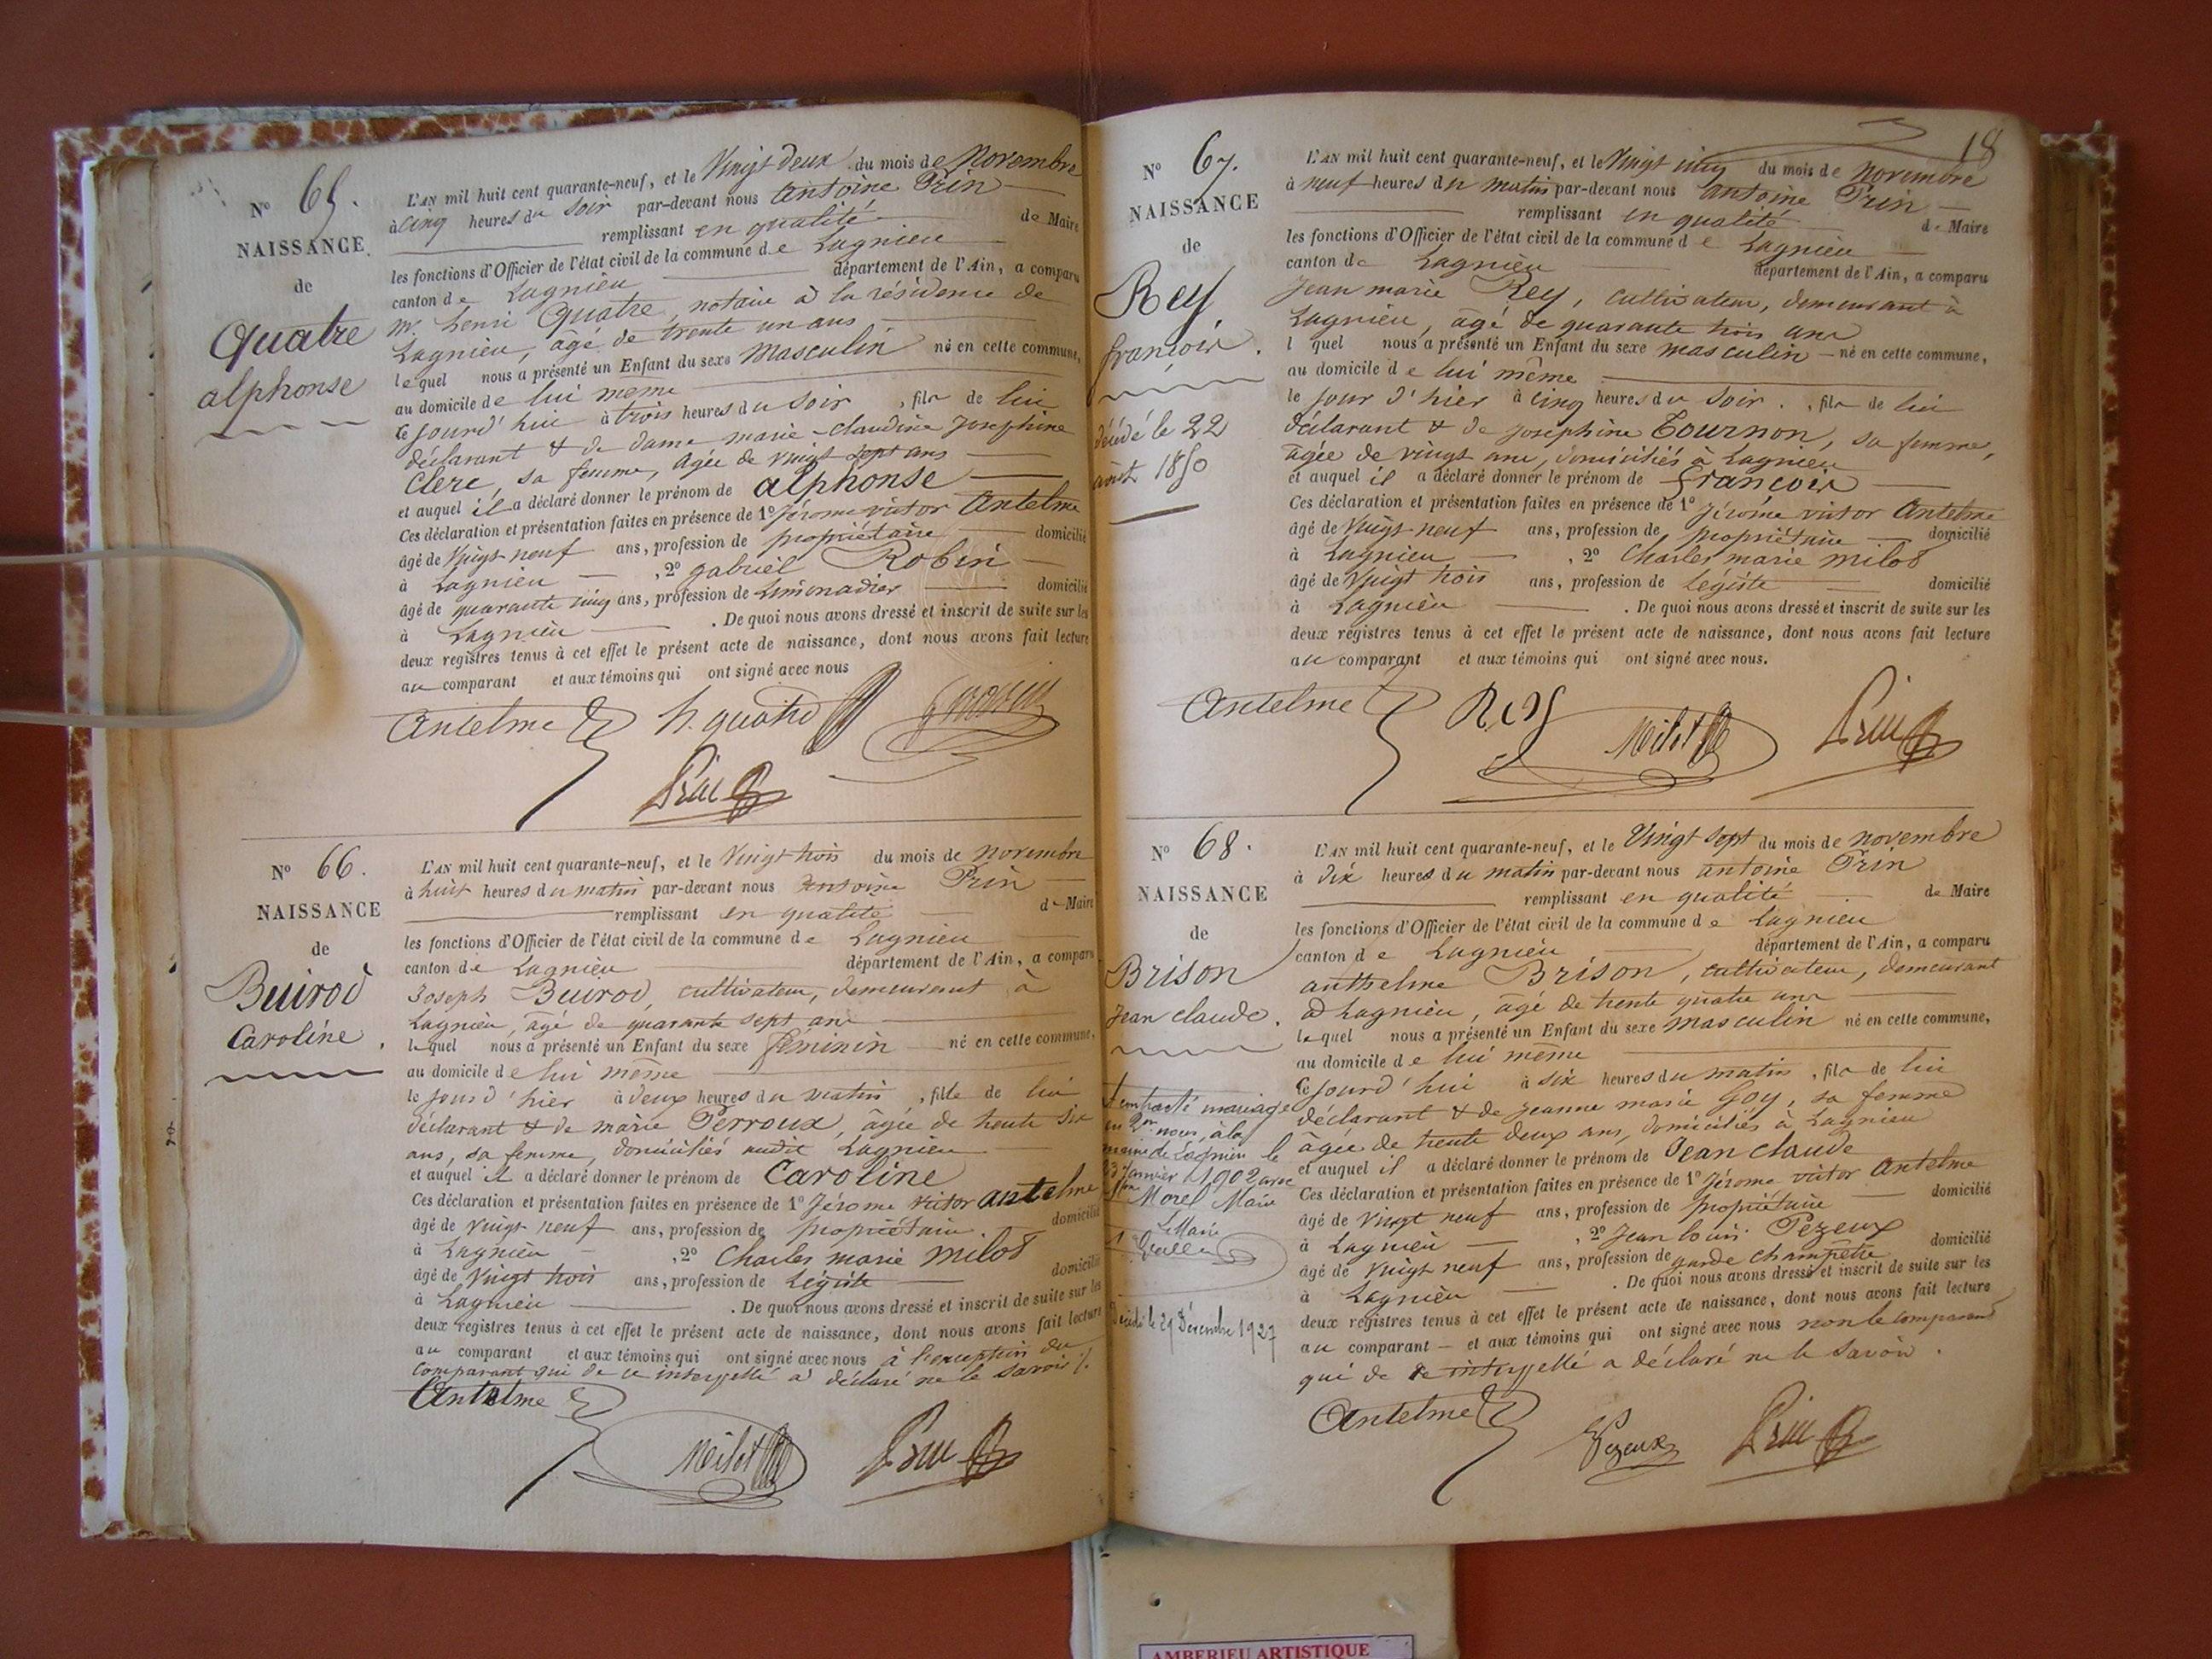 N° 65.
NAISSANCE
de
Quatre
alphonse
L'AN mil huit cent quarante-neuf, et le Vingt deux du mois de Novembre
à cinq heures du soir par-devant nous Antoine Prin
remplissant en qualité de Maire
les fonctions d'Officier de l'état civil de la commune de Lagnieu
canton de Lagnieu département de l'Ain, a comparu
mr. henri Quatre, notaire à la résidence de
Lagnieu, âgé de trente un ans
lequel nous a présenté un Enfant du sexe Masculin né en cette commune,
au domicile de lui même
ce jourd'hui à trois heures du soir, fils de lui
déclarant & de dame marie-claudine Josephine
Clerc, sa femme, agée de vingt sept ans
et auquel il a déclaré donner le prénom de alphonse
Ces déclaration et présentation faites en présence de 1° Jérome victor Antelme
âgé de Vingt neuf ans, profession de propriétaire domicilié
à Lagnieu, 2° gabriel Robin
âgé de quarante cinq ans, profession de Limonadier domicilié
à Lagnieu. De quoi nous avons dressé et inscrit de suite sur les
deux registres tenus à cet effet le présent acte de naissance, dont nous avons fait lecture
au comparant et aux témoins qui ont signé avec nous
Antelme h. quatre
Prin
N° 66.
NAISSANCE
de
Buirod
Caroline.
L'AN mil huit cent quarante-neuf, et le Vingt trois du mois de novembre
à huit heures du matin par-devant nous Antoine Prin
remplissant en qualité de Maire
les fonctions d'Officier de l'état civil de la commune de Lagnieu
canton de Lagnieu département de l'Ain, a comparu
Joseph Buirod, cultivateur, demeurant à
Lagnieu, âgé de quarante sept ans
lequel nous a présenté un Enfant du sexe féminin né en cette commune,
au domicile de lui même
le jour d'hier à deux heures du matin, fille de lui
déclarant & de marie Perroux, âgée de trente six
ans, sa femme, domiciliés audit Lagnieu
et auquel il a déclaré donner le prénom de Caroline
Ces déclaration et présentation faites en présence de 1° Jérome victor antelme
âgé de vingt neuf ans, profession de propriétaire. domicilié
à Lagnieu, 2° Charles marie milot
âgé de Vingt trois ans, profession de Légiste domicilié
à Lagnieu. De quoi nous avons dressé et inscrit de suite sur les
deux registres tenus à cet effet le présent acte de naissance, dont nous avons fait lecture
au comparant et aux témoins qui ont signé avec nous à l'exception du
comparant qui de ce interpellé a déclaré ne le savoir
Antelme
Milot Prin
18
N° 67.
NAISSANCE
de
Rey,
françois.
décédé le 22
août 1850
L'AN mil huit cent quarante-neuf, et le Vingt cinq du mois de novembre
à neuf heures du matin par-devant nous antoine Prin
remplissant en qualité de Maire
les fonctions d'Officier de l'état civil de la commune de Lagnieu
canton de Lagnieu département de l'Ain, a comparu
Jean marie Rey, cultivateur, demeurant à
Lagnieu, âgé de quarante trois ans
l quel nous a présenté un Enfant du sexe masculin né en cette commune,
au domicile de lui même
le jour d'hier à cinq heures du soir., fils de lui
déclarant & de Josephine Tournon, sa femme,
âgée de vingt ans, domiciliés à Lagnieu
et auquel il a déclaré donner le prénom de françois
Ces déclaration et présentation faites en présence de 1° Jérome victor Antelme
âgé de Vingt neuf ans, profession de propriétaire domicilié
à Lagnieu, 2° Charles marie milot
âgé de Vingt trois ans, profession de Légiste domicilié
à Lagnieu. De quoi nous avons dressé et inscrit de suite sur les
deux registres tenus à cet effet le présent acte de naissance, dont nous avons fait lecture
au comparant et aux témoins qui ont signé avec nous.
Antelme Rey Milot Prin
N° 68.
NAISSANCE
de
Brison
Jean claude.
contracté mariage
mairie de Lagnieu le
janvier 1902 avec
Morel Marie
Le Maire
Décédé le 29 Décembre 1927
L'AN mil huit cent quarante-neuf, et le Vingt sept du mois de novembre
à dix heures du matin par-devant nous antoine Prin
remplissant en qualité de Maire
les fonctions d'Officier de l'état civil de la commune de Lagnieu
canton de Lagnieu département de l'Ain, a comparu
anthelme Brison, cultivateur, demeurant
à Lagnieu, âgé de trente quatre ans
lequel nous a présenté un Enfant du sexe masculin né en cette commune,
au domicile de lui même
ce jourd'hui à six heures du matin, fils de lui
déclarant & de jeanne marie Goy, sa femme
âgée de trente deux ans, domiciliés à Lagnieu
et auquel il a déclaré donner le prénom de Jean claude
Ces déclaration et présentation faites en présence de 1° Jérome victor Antelme
âgé de vingt neuf ans, profession de propriétaire domicilié
à Lagnieu, 2° Jean louis Pezeux
âgé de Vingt neuf ans, profession de garde champêtre domicilié
à Lagnieu. De quoi nous avons dressé et inscrit de suite sur les
deux registres tenus à cet effet le présent acte de naissance, dont nous avons fait lecture
au comparant et aux témoins qui ont signé avec nous non le comparant
qui de ce interpellé a déclaré ne le savoir.
Antelme Pezeux Prin
AMBERIEU ARTISTIQUE